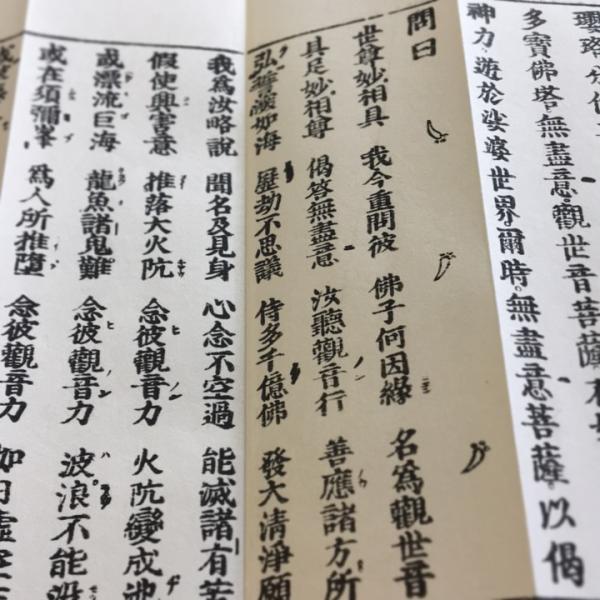 瓔珞分作
多寶佛塔無盡意觀世音菩薩有
神力遊於娑婆世界爾時無盡意菩薩以偈
問曰
世尊妙相具 我今重問彼 佛子何因緣 名爲觀世音
具足妙相尊 偈答無盡意 汝聽觀音行 善應諸方所
弘誓深如海 歷劫不思議 侍多千億佛 發大清淨願
我爲汝略說 聞名及見身 心念不空過 能滅諸有苦
假使興害意 推落大火阬 念彼觀音力 火阬變成池
或漂流巨海 龍魚諸鬼難 念彼觀音力 波浪不能沒
或在須彌峯 爲人所推墮 念彼觀音力 如日虛空